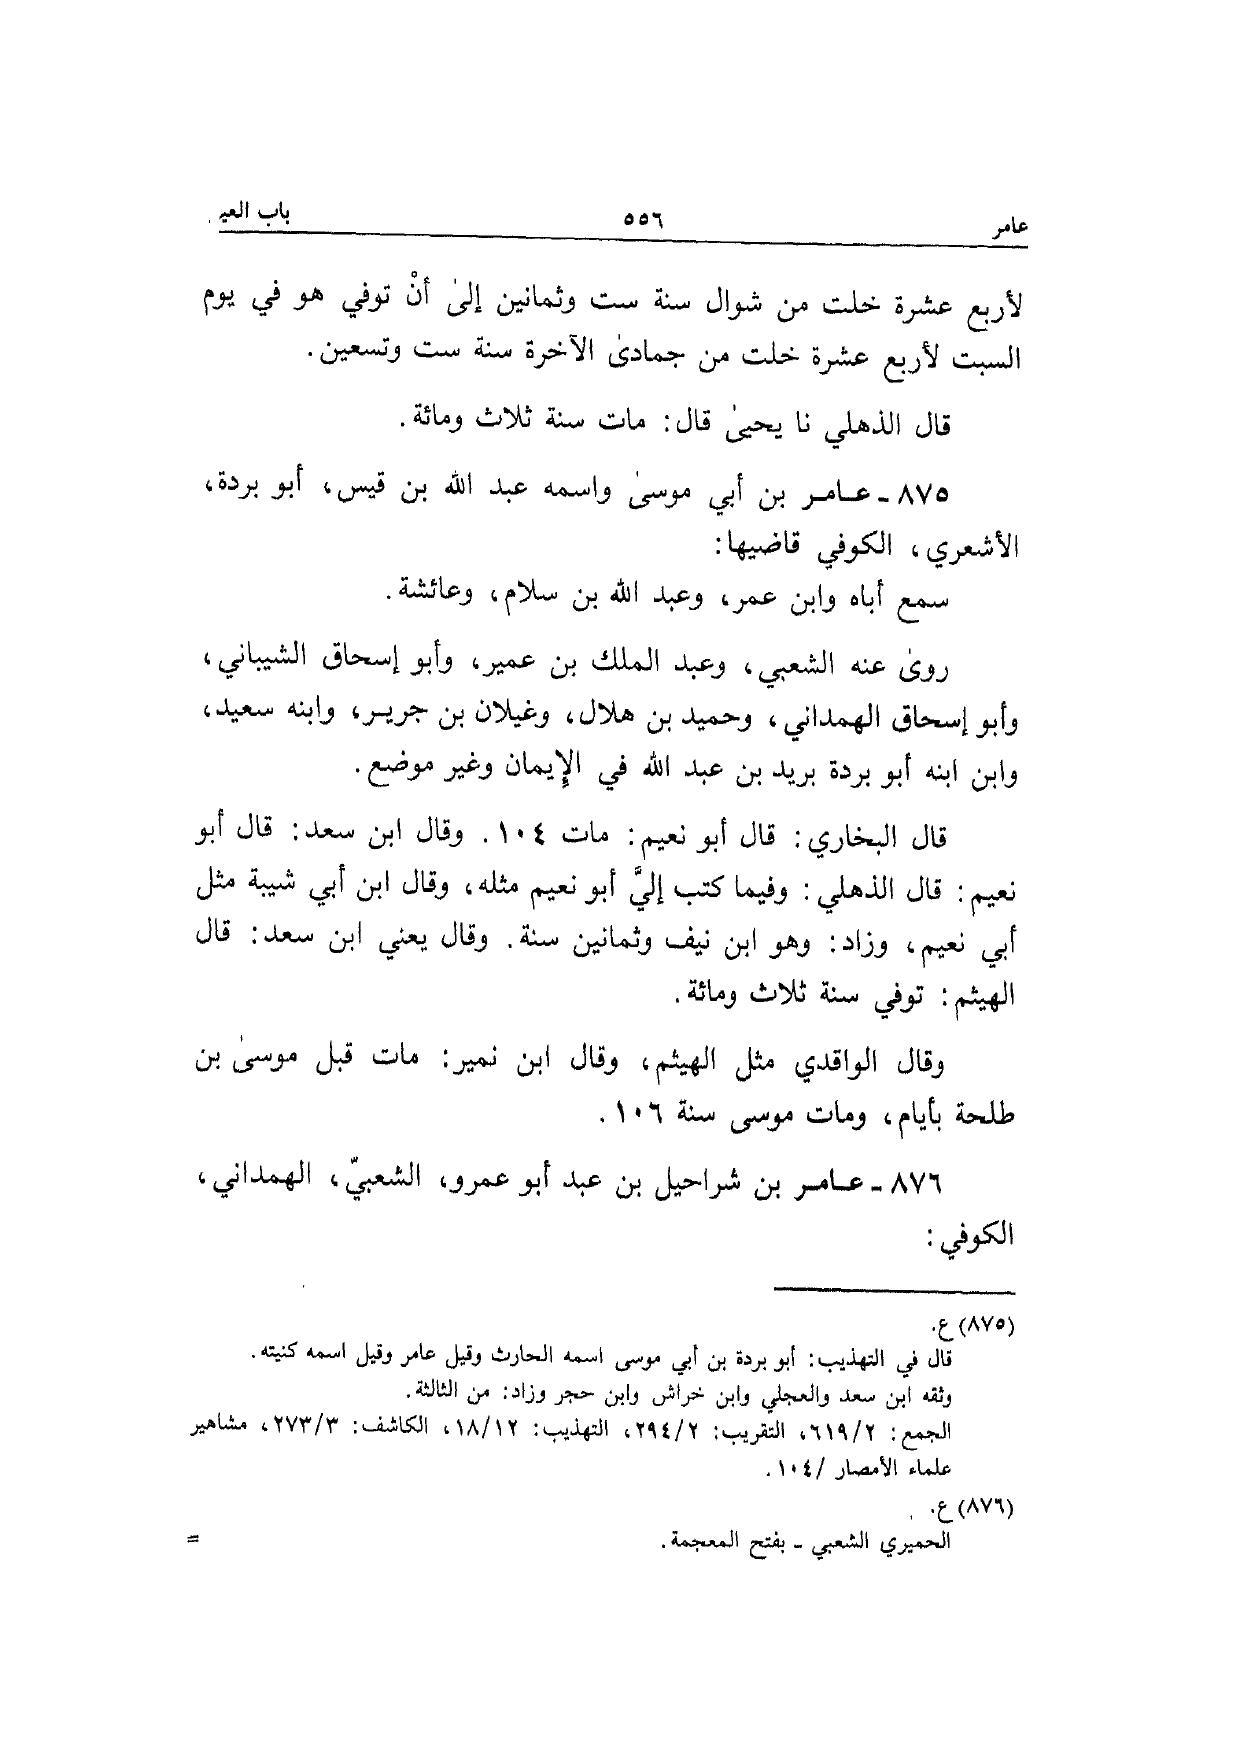 عامر ٥٥٦ باب العيـ
لأربع عشرة خلت من شوال سنة ست وثمانين إلىٰ أنْ توفي هو في يوم
السبت لأربع عشرة خلت من جمادىٰ الآخرة سنة ست وتسعين.
قال الذهلي نا يحيىٰ قال: مات سنة ثلاث ومائة.
٨٧٥ ـ عـامـر بن أبي موسىٰ واسمه عبد الله بن قيس، أبو بردة،
الأشعري، الكوفي قاضيها:
سمع أباه وابن عمر، وعبد الله بن سلام، وعائشة.
روىٰ عنه الشعبي، وعبد الملك بن عمير، وأبو إسحاق الشيباني،
وأبو إسحاق الهمداني، وحميد بن هلال، وغيلان بن جريـر، وابنه سعيد،
وابن ابنه أبو بردة بريد بن عبد الله في الإيمان وغير موضع.
قال البخاري: قال أبو نعيم: مات ١٠٤. وقال ابن سعد: قال أبو
نعيم: قال الذهلي: وفيما كتب إليَّ أبو نعيم مثله، وقال ابن أبي شيبة مثل
أبي نعيم، وزاد: وهو ابن نيف وثمانين سنة. وقال يعني ابن سعد: قال
الهيثم: توفي سنة ثلاث ومائة.
وقال الواقدي مثل الهيثم، وقال ابن نمير: مات قبل موسىٰ بن
طلحة بأيام، ومات موسى سنة ١٠٦.
٨٧٦ ـ عـامـر بن شراحيل بن عبد أبو عمرو، الشعبيّ، الهمداني،
الكوفي:
(٨٧٥) ع.
قال في التهذيب: أبو بردة بن أبي موسى اسمه الحارث وقيل عامر وقيل اسمه كنيته.
وثقه ابن سعد والعجلي وابن خراش وابن حجر وزاد: من الثالثة.
الجمع: ٦١٩/٢، التقريب: ٢٩٤/٢، التهذيب: ١٨/١٢، الكاشف: ٢٧٣/٣، مشاهير
علماء الأمصار /١٠٤.
(٨٧٦) ع.
الحميري الشعبي ـ بفتح المعجمة. =